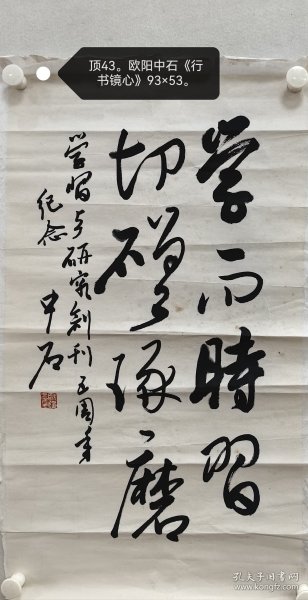 顶43。欧阳中石《行
书镜心》93×53。
學而時習
切磋琢磨
学習与研究創刊五周年
纪念
中石
孔夫子旧书网
www.kongfz.com